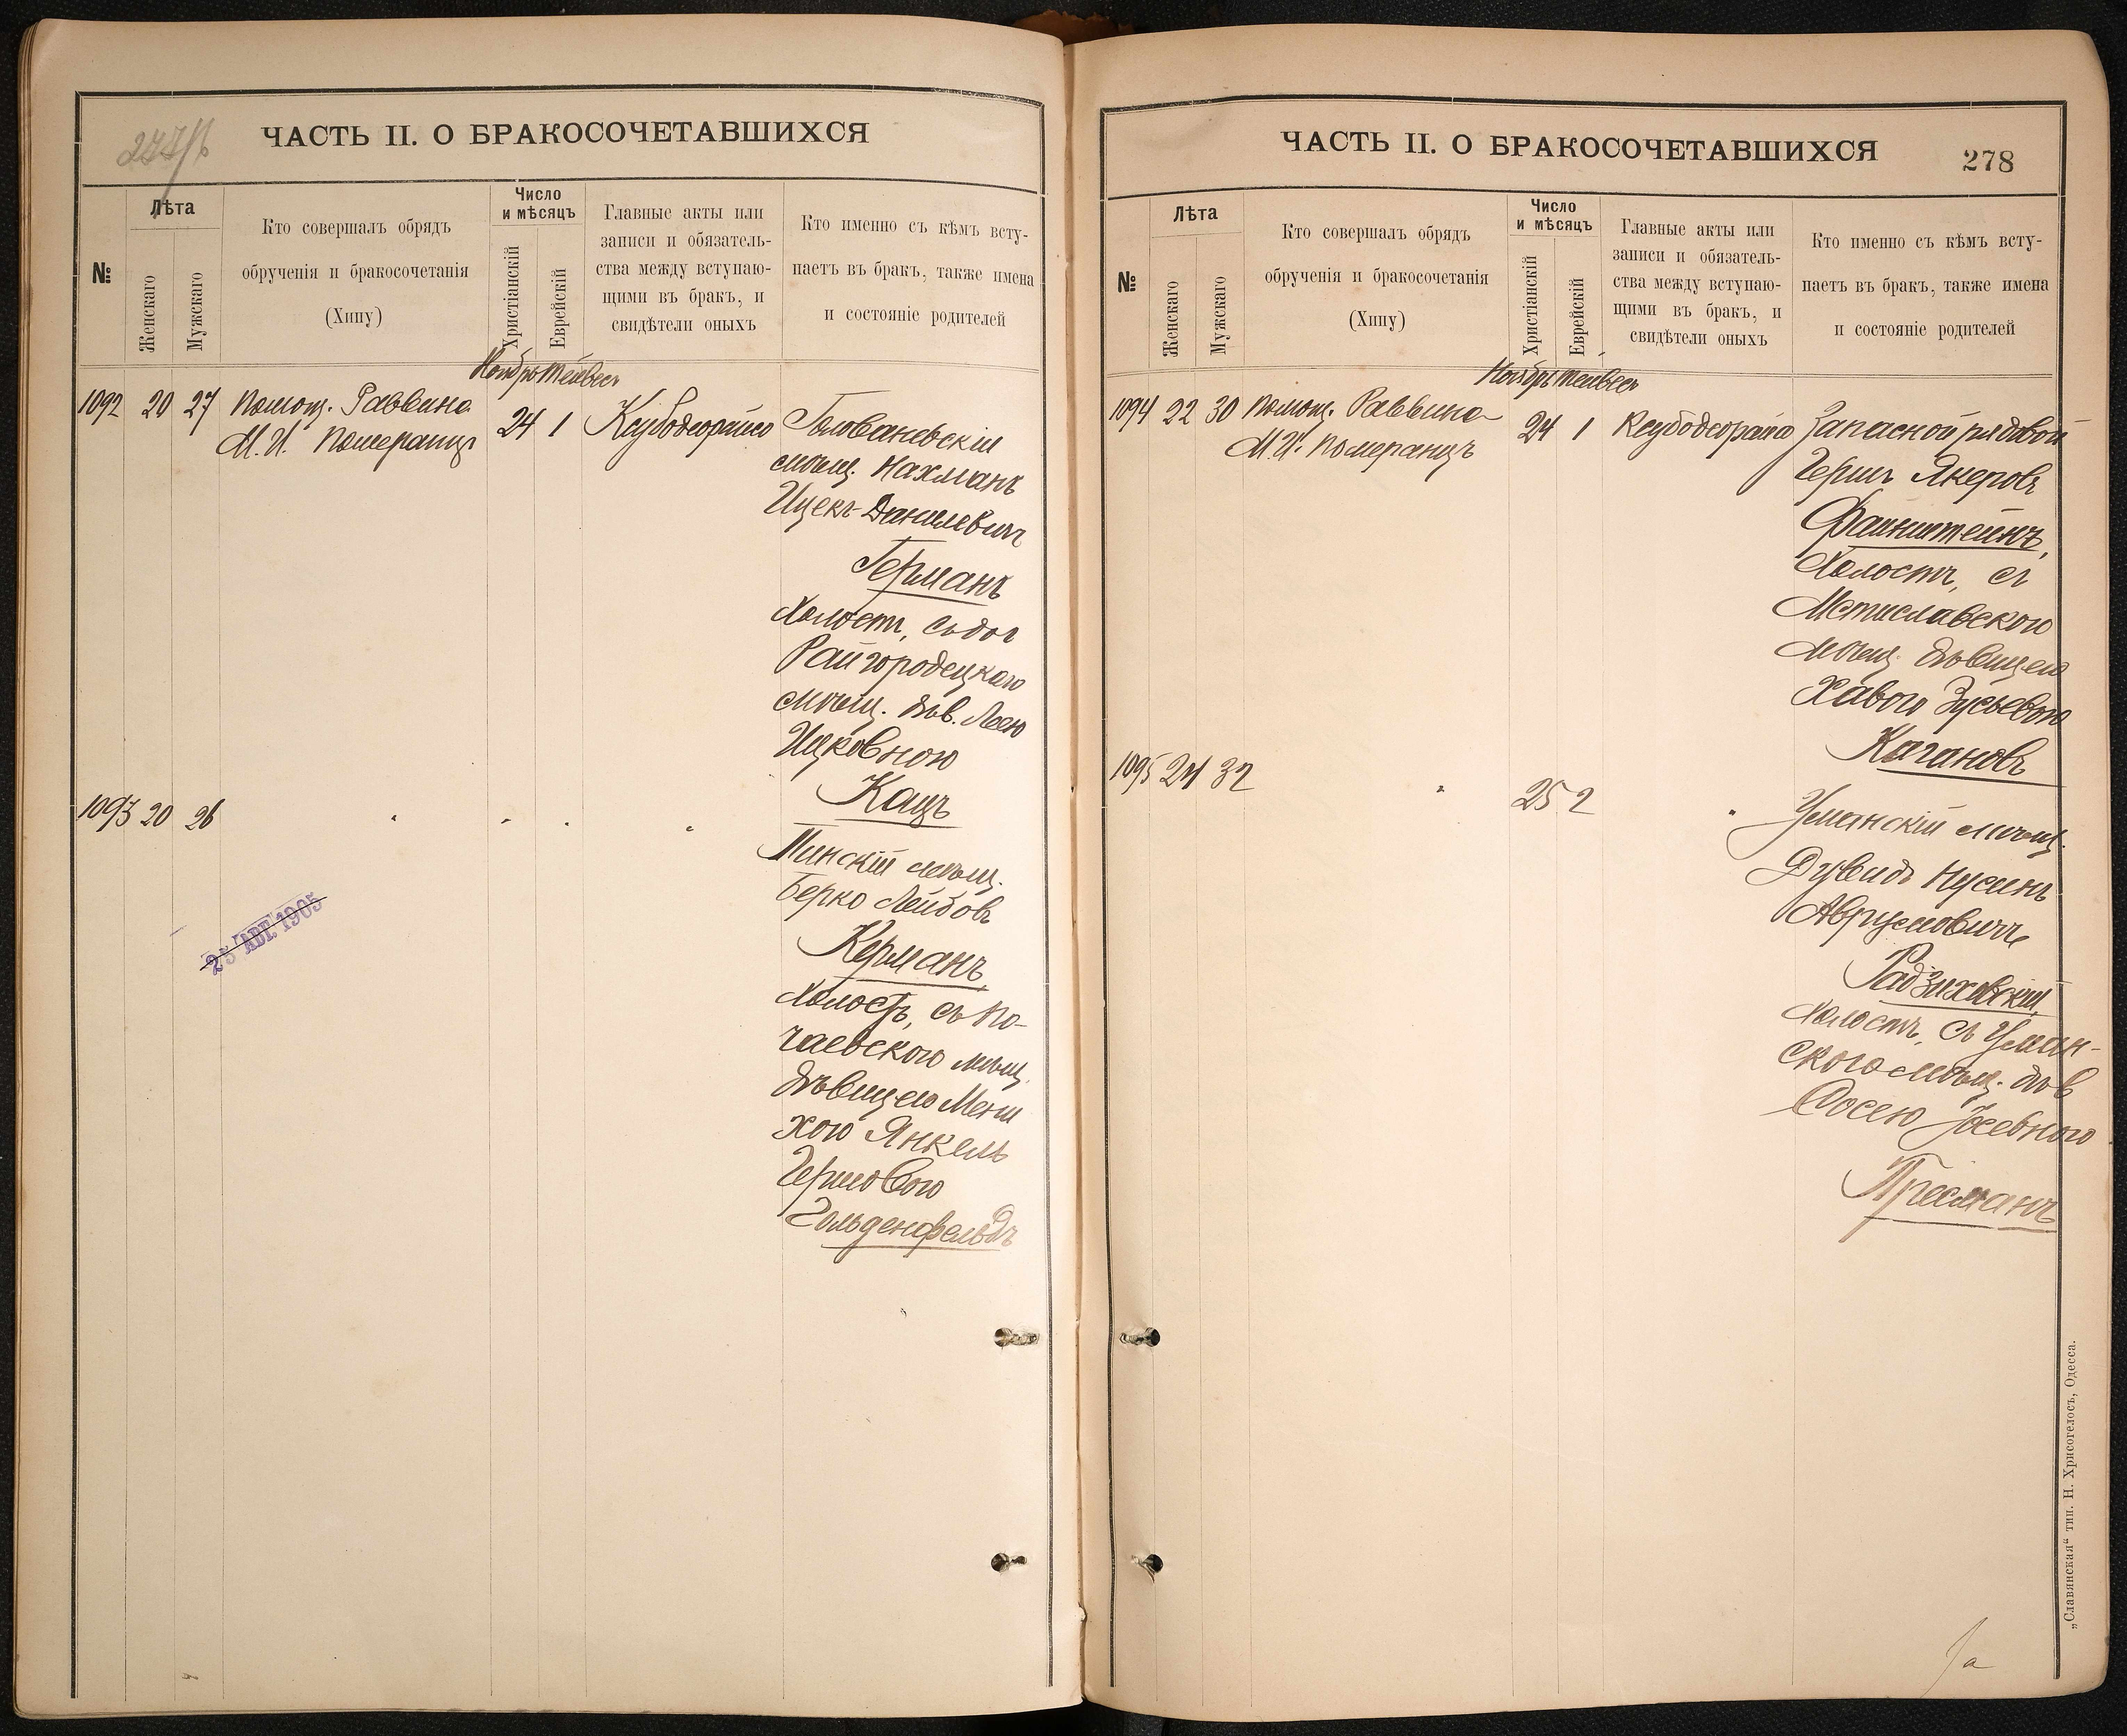 ЧАСТЬ II. О БРАКОСОЧЕТАВШИХСЯ
№
Лѣта
Женскаго
Мужскаго
Кто совершалъ обрядъ
обрученія и бракосочетанія
(Хипу)
Число
и мѣсяцъ
Христіанскій
Еврейскій
Главные акты или
записи и обязатель-
ства между вступаю-
щими въ бракъ, и
свидѣтели оныхъ
Кто именно съ кѣмъ всту-
паетъ въ бракъ, также имена
и состояніе родителей
Ноябрь Тейвес
1092 20 27
Помощ. Раввина
М. И. Померанцъ
24 1
Ксубодеорайсо
Голованевскій
мѣщ. Нахманъ
Ицекъ Данилевичъ
Германъ
холостъ, съ доч
Райгородецкаго
мѣщ. дѣв. Леею
Ицковною
Кацъ
1093 20 26
Пинскій мѣщ.
Берко Лейбовъ
Керманъ,
холостъ, съ По-
чаевскою мѣщ.
дѣвицею Мени
хою Янкель
Гершовою
Гольденфельдъ
25 АВГ. 1905
ЧАСТЬ II. О БРАКОСОЧЕТАВШИХСЯ
278
№
Лѣта
Женскаго
Мужскаго
Кто совершалъ обрядъ
обрученія и бракосочетанія
(Хипу)
Число
и мѣсяцъ
Христіанскій
Еврейскій
Главные акты или
записи и обязатель-
ства между вступаю-
щими въ бракъ, и
свидѣтели оныхъ
Кто именно съ кѣмъ всту-
паетъ въ бракъ, также имена
и состояніе родителей
Ноябрь Тейвес
1094 22 30
Помощ. Раввина
М. И. Померанцъ
24 1
Запасной рядовой
Гершъ Янкеровъ
Файнштейнъ,
холостъ, съ
Мстиславскою
мѣщ. дѣвицею
Хавою Зусьевою
Кагановъ
1095 24 32
25 2
Уманскій мѣщ.
Дувидъ Нусинъ
Аврумовичъ
Радзиховскій,
холостъ, съ Уман-
скою мѣщ. дѣв
Сосею Іосевною
Пресманъ
„Славянская“ тип. Н. Хрисогелосъ, Одесса.